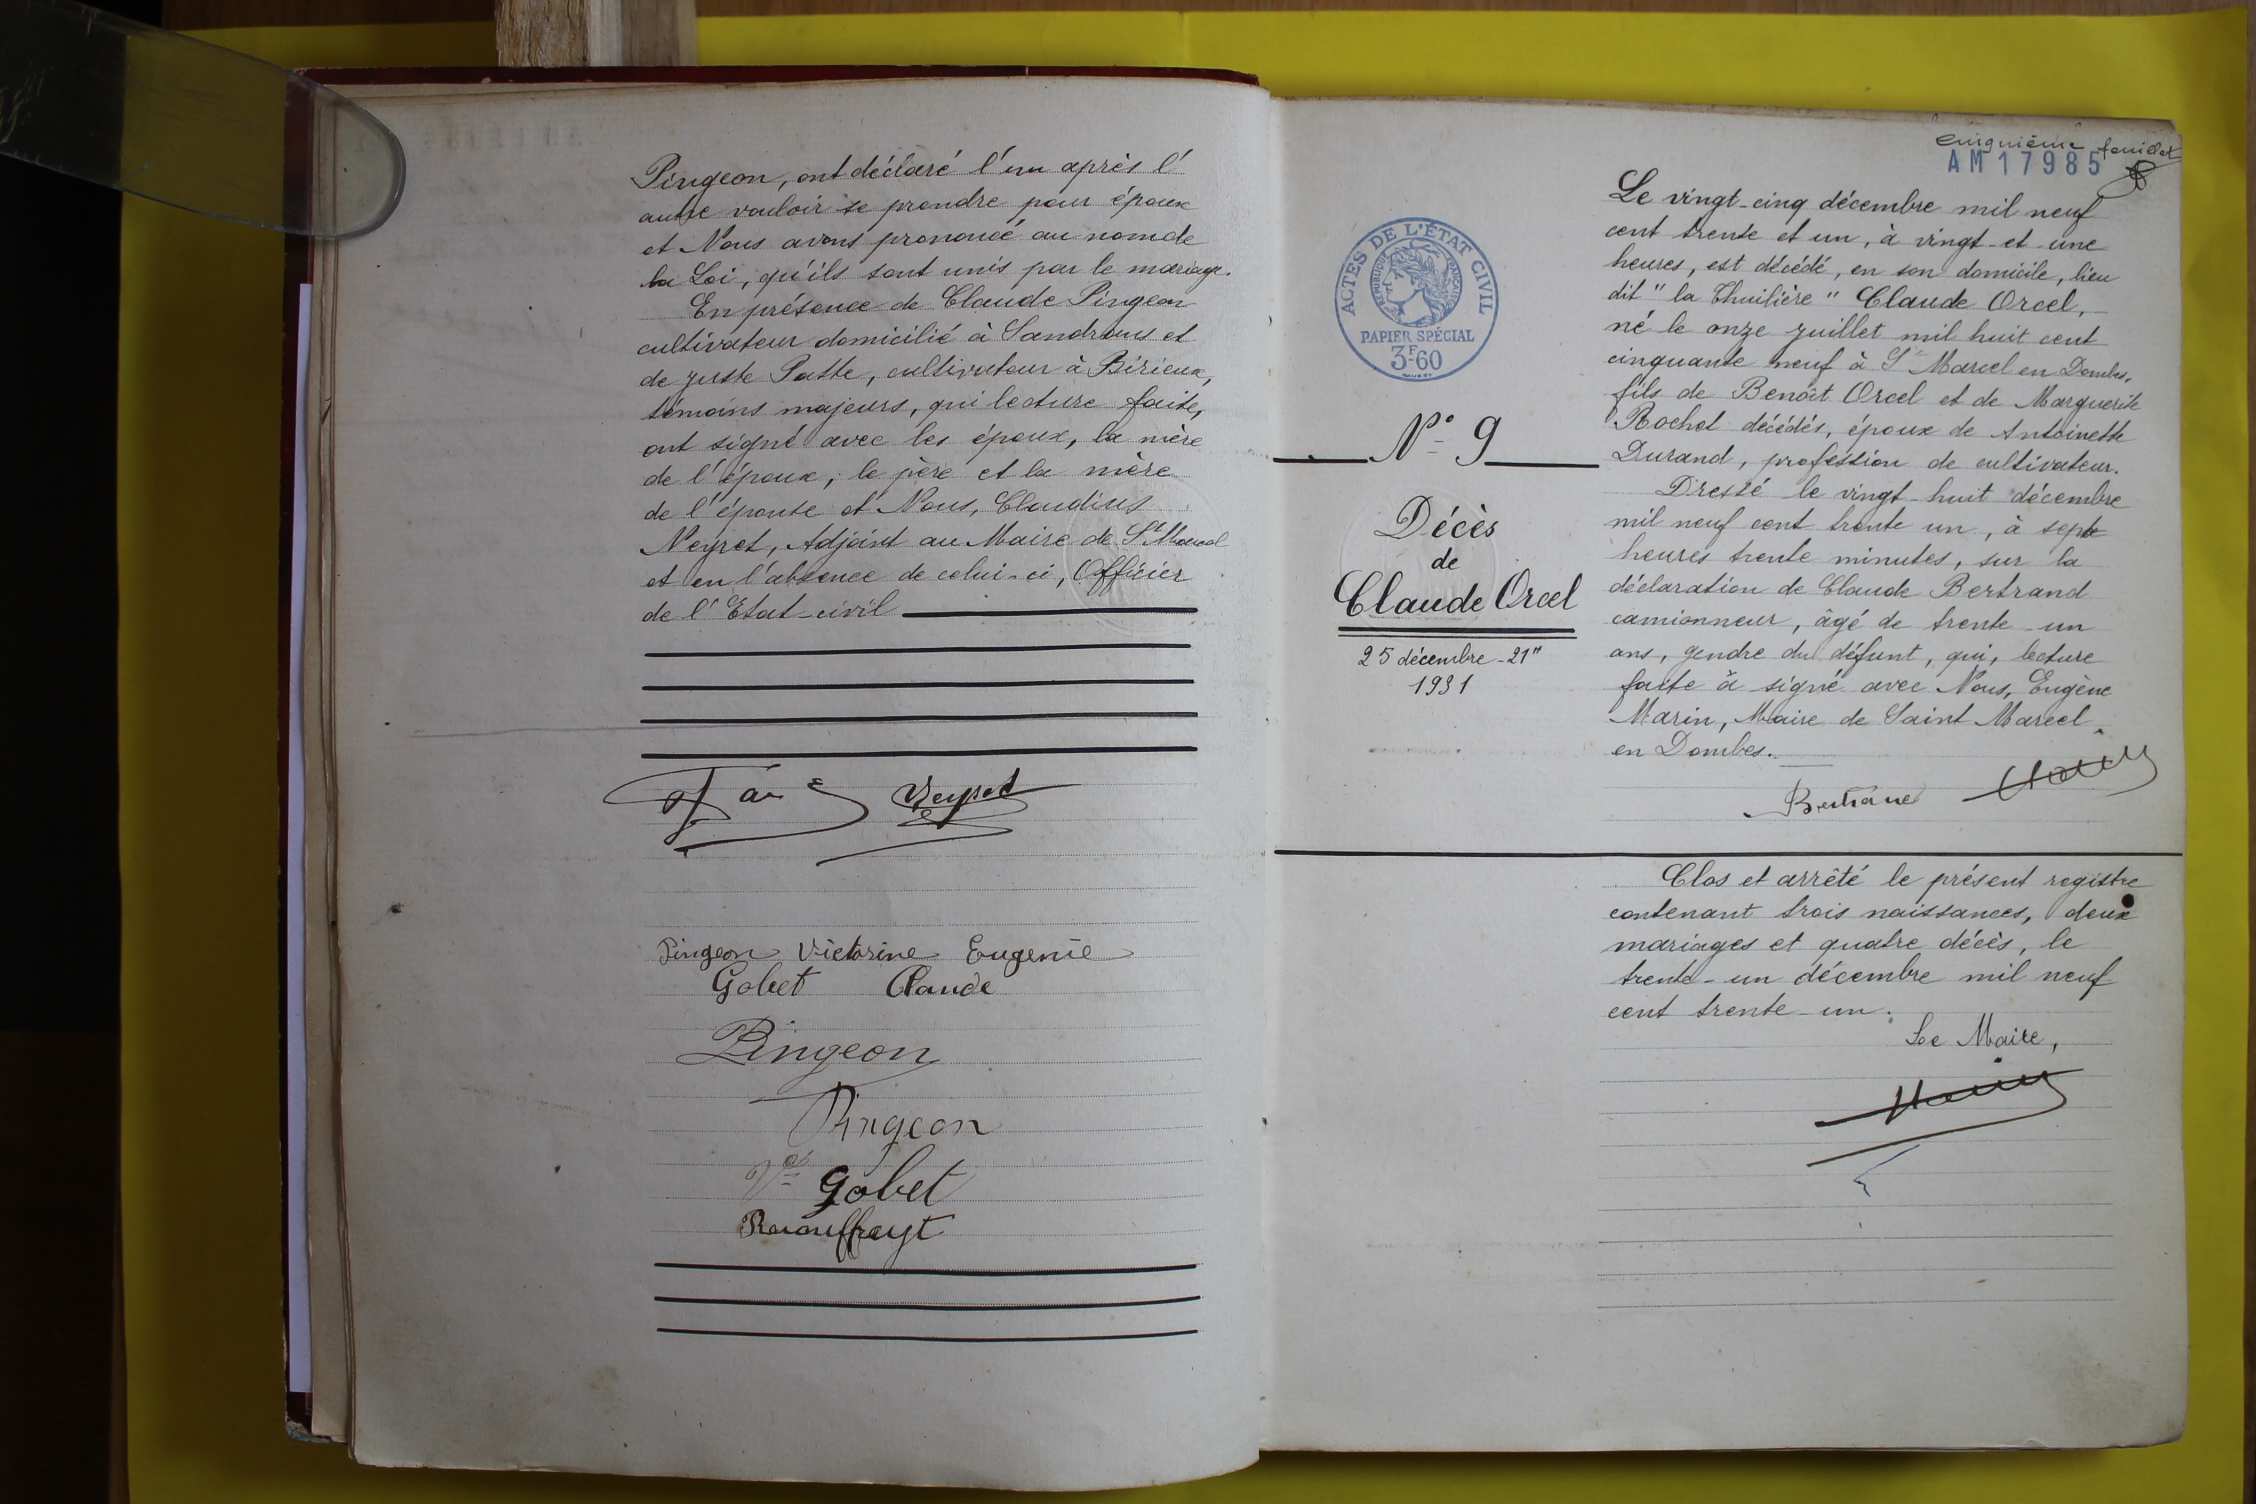 Pingeon, ont déclaré l'un après l'
autre vouloir se prendre pour époux
et Nous avons prononcé au nom de
la Loi, qu'ils sont unis par le mariage.
En présence de Claude Pingeon
cultivateur domicilié à Sandrans et
de Juste Patte, cultivateur à Birieux,
témoins majeurs, qui lecture faite,
ont signé avec les époux, la mère
de l'époux, le père et la mère
de l'épouse et Nous, Claudius
Neyret, Adjoint au Maire de St Marcel
et en l'absence de celui-ci, Officier
de l'Etat-civil
Neyret
Pingeon Victorine Eugenie
Gobet Claude
Pingeon
Pingeon
Vve Gobet
cinquième feuillet
AM17985
ACTES DE L'ÉTAT CIVIL
RÉPUBLIQUE FRANÇAISE
PAPIER SPÉCIAL
3F60
N° 9
Décès
de
Claude Orcel
25 décembre - 21"
1931
Le vingt-cinq décembre mil neuf
cent trente et un, à vingt-et-une
heures, est décédé, en son domicile, lieu
dit "la Thuilière" Claude Orcel,
né le onze juillet mil huit cent
cinquante neuf à St Marcel en Dombes,
fils de Benoît Orcel et de Marguerite
Rochet décédés, époux de Antoinette
Durand, profession de cultivateur.
Dressé le vingt-huit décembre
mil neuf cent trente un, à sept
heures trente minutes, sur la
déclaration de Claude Bertrand
camionneur, âgé de trente-un
ans, gendre du défunt, qui, lecture
faite à signé avec Nous, Eugène
Marin, Maire de Saint Marcel
en Dombes.
Bertrand
Clos et arrêté le présent registre
contenant trois naissances, deux
mariages et quatre décès, le
trente-un décembre mil neuf
cent trente-un.
Le Maire,